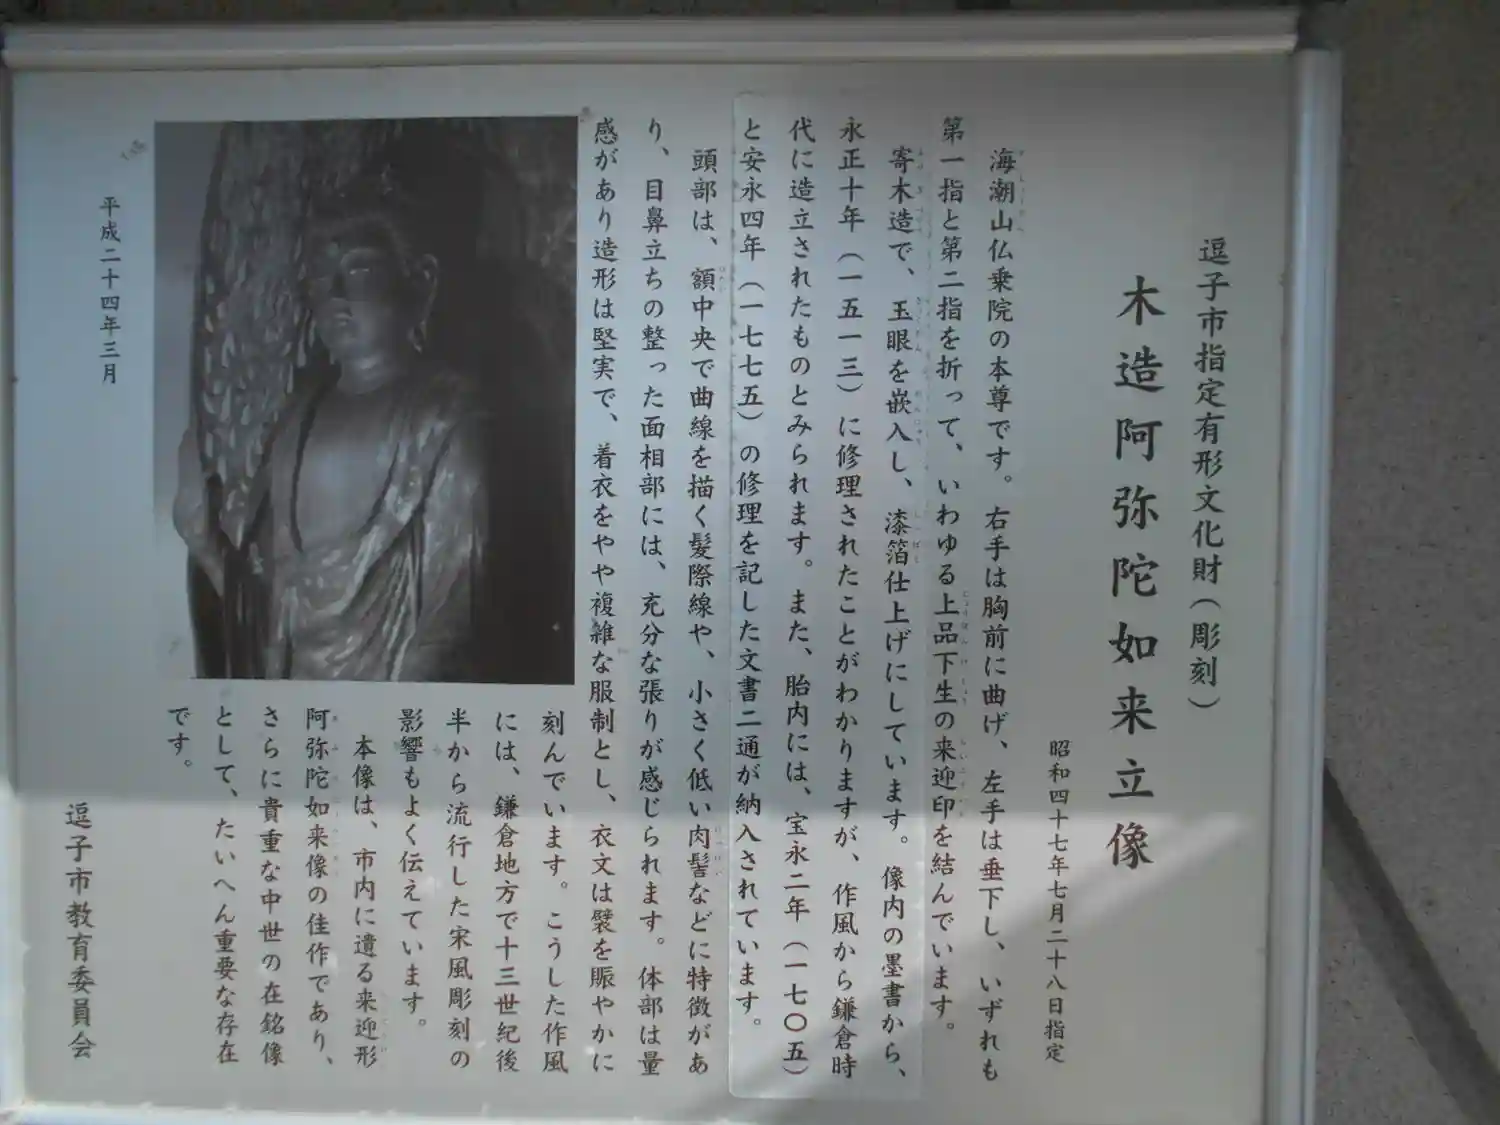 逗子市指定有形文化財（彫刻）
木造阿弥陀如来立像
昭和四十七年七月二十八日指定
海潮山仏乗院の本尊です。右手は胸前に曲げ、左手は垂下し、いずれも
第一指と第二指を折って、いわゆる上品下生の来迎印を結んでいます。
寄木造で、玉眼を嵌入し、漆箔仕上げにしています。像内の墨書から、
永正十年（一五一三）に修理されたことがわかりますが、作風から鎌倉時
代に造立されたものとみられます。また、胎内には、宝永二年（一七〇五）
と安永四年（一七七五）の修理を記した文書二通が納入されています。
頭部は、額中央で曲線を描く髪際線や、小さく低い肉髻などに特徴があ
り、目鼻立ちの整った面相部には、充分な張りが感じられます。体部は量
感があり造形は堅実で、着衣をやや複雑な服制とし、衣文は襞を賑やかに
刻んでいます。こうした作風
には、鎌倉地方で十三世紀後
半から流行した宋風彫刻の
影響もよく伝えています。
本像は、市内に遺る来迎形
阿弥陀如来像の佳作であり、
さらに貴重な中世の在銘像
として、たいへん重要な存在
です。
平成二十四年三月
逗子市教育委員会